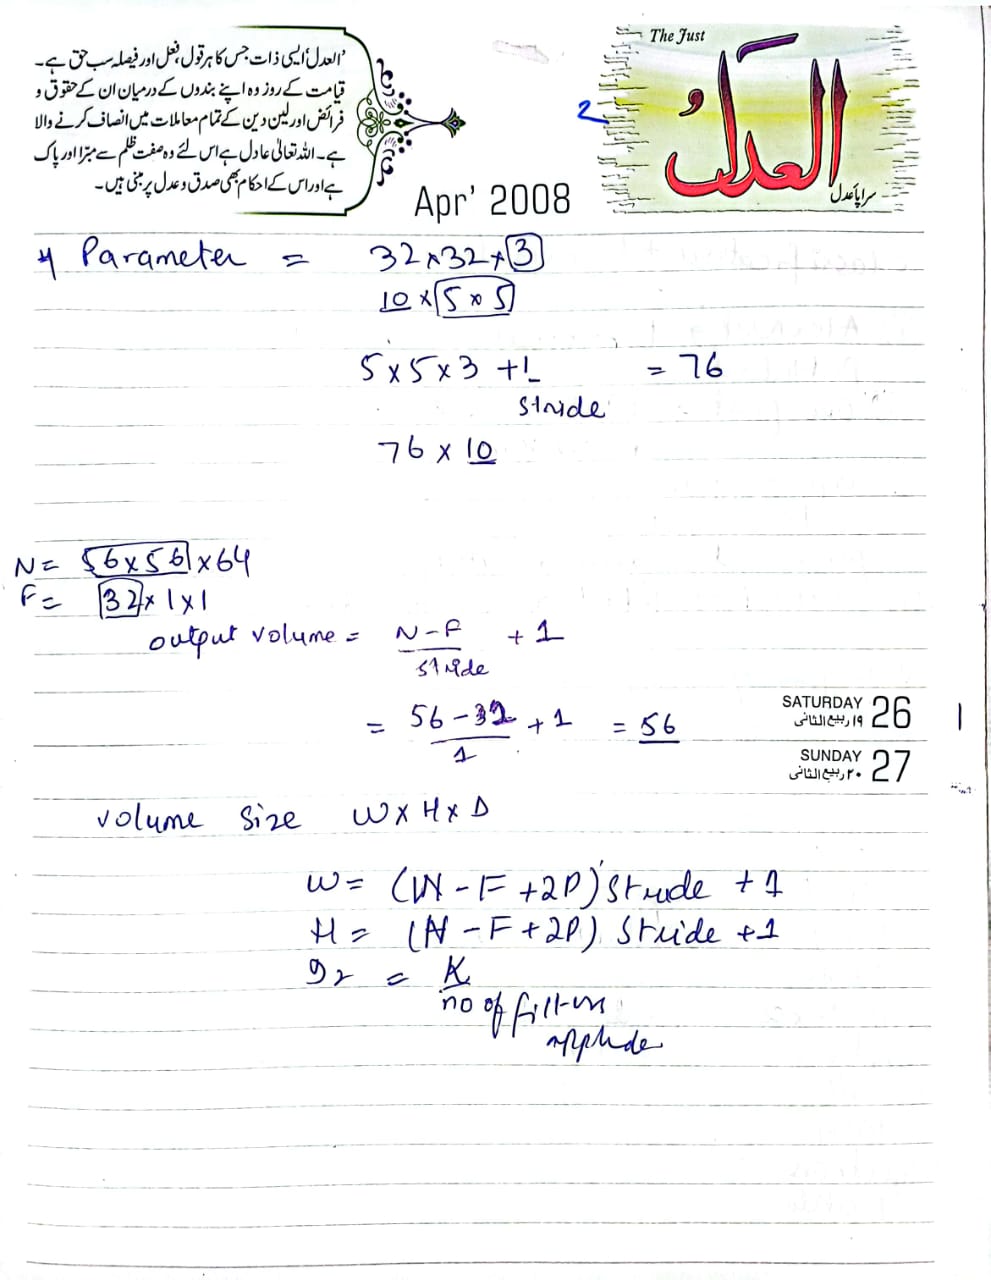 'العدل' ایسی ذات جس کا ہر قول، فعل اور فیصلہ سب حق ہے۔
قیامت کے روز وہ اپنے بندوں کے درمیان ان کے حقوق و
فرائض اور لین دین کے تمام معاملات میں انصاف کرنے والا
ہے۔ اللہ تعالیٰ عادل ہے اس لئے وہ صفت ظلم سے مبرّا اور پاک
ہے اور اس کے احکام بھی صدق و عدل پر مبنی ہیں۔
The Just
العدل
سراپا عدل
2
Apr' 2008
Parameter = 32x32x3
10 x 5x5
5x5x3 +1 = 76
stride
76 x 10
N= 56x56 x64
F= 32x1x1
output volume = N-F + 1
stride
= 56-32 + 1 = 56
1
SATURDAY 26
۱۹ ربیع الثانی
SUNDAY 27
۲۰ ربیع الثانی
volume size WxHxD
W= (N-F+2P) Stride +1
H= (N-F+2P) Stride +1
= K
no of